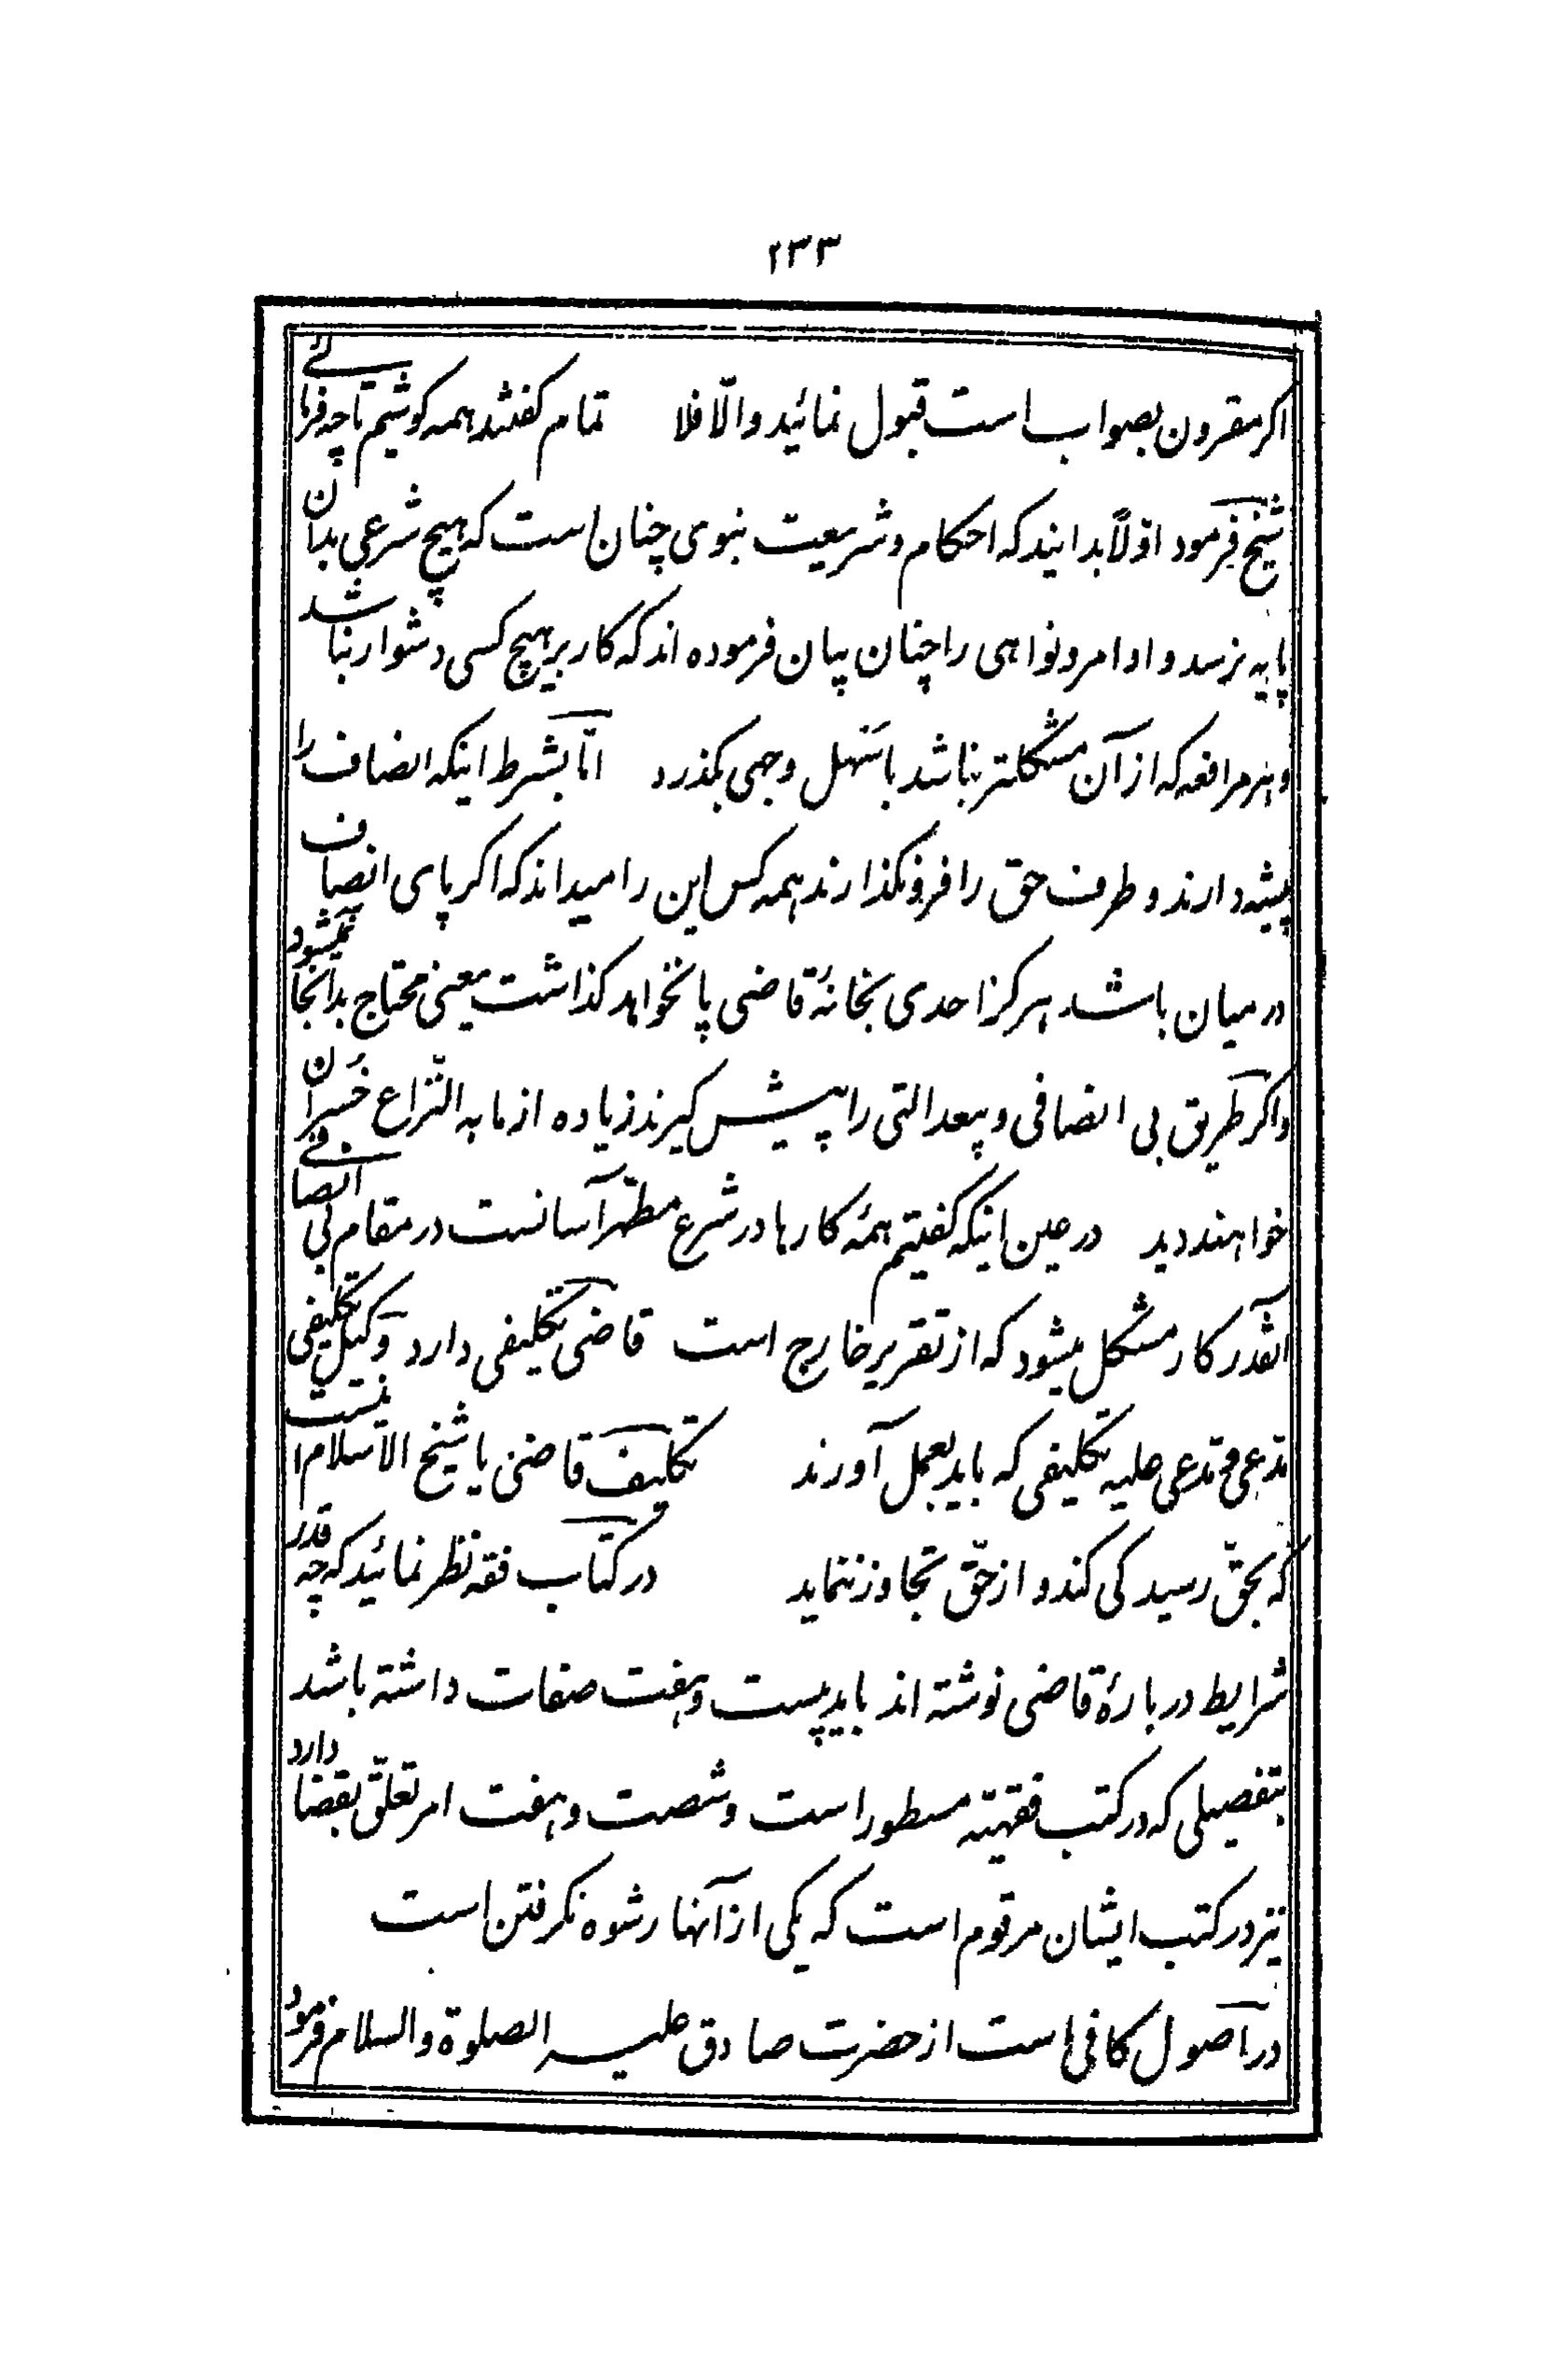 ۲۳۳
اکر مقرون بصواب است قبول نمائید والّا فلا تمام کفتند همه کوشیم تا چه فرمائی
شیخ فرمود اوّلاً بدانید که احکام و شریعت نبوی چنان است که هیچ شرعی بدان
پایه نرسد و اوامر و نواهی را چنان بیان فرموده اند که کار بر هیچ کسی دشوار نباشد
و هر مرافعه که از آن مشکلتر نباشد باسهل وجهی بکذرد امّا بشرط اینکه انصاف را
پیشه دارند و طرف حق را فرو نکذارند همه کس این را میداند که اکر پای انصاف
در میان باشد هرکز احدی بخانهٔ قاضی پا نخواهد کذاشت یعنی محتاج بدانجا نمیشود
و اکر طریق بی انصافی و بیعدالتی را پیش کیرند زیاده از ما به النّزاع خسران
خواهند دید در عین اینکه کفتیم همهٔ کارها در شرع مطهّر آسانست در مقام بی انصافی
آنقدر کار مشکل میشود که از تقریر خارج است قاضی تکلیفی دارد وکیل تکلیفی
مدّعی و مدّعی علیه تکلیفی که باید بعمل آورند تکلیف قاضی یا شیخ الاسلام اینست
که بحقّ رسیدکی کند و از حقّ تجاوز ننماید در کتاب فقه نظر نمائید که چه قدر
شرایط دربارهٔ قاضی نوشته اند باید بیست و هفت صفات داشته باشد
بتفصیلی که در کتب فقهیّه مسطور است و شصت و هفت امر تعلّق بقضا دارد
نیز در کتب ایشان مرقوم است که یکی از آنها رشوه نکرفتن است
در اصول کافی است از حضرت صادق علیه الصلوة والسلام فرمود